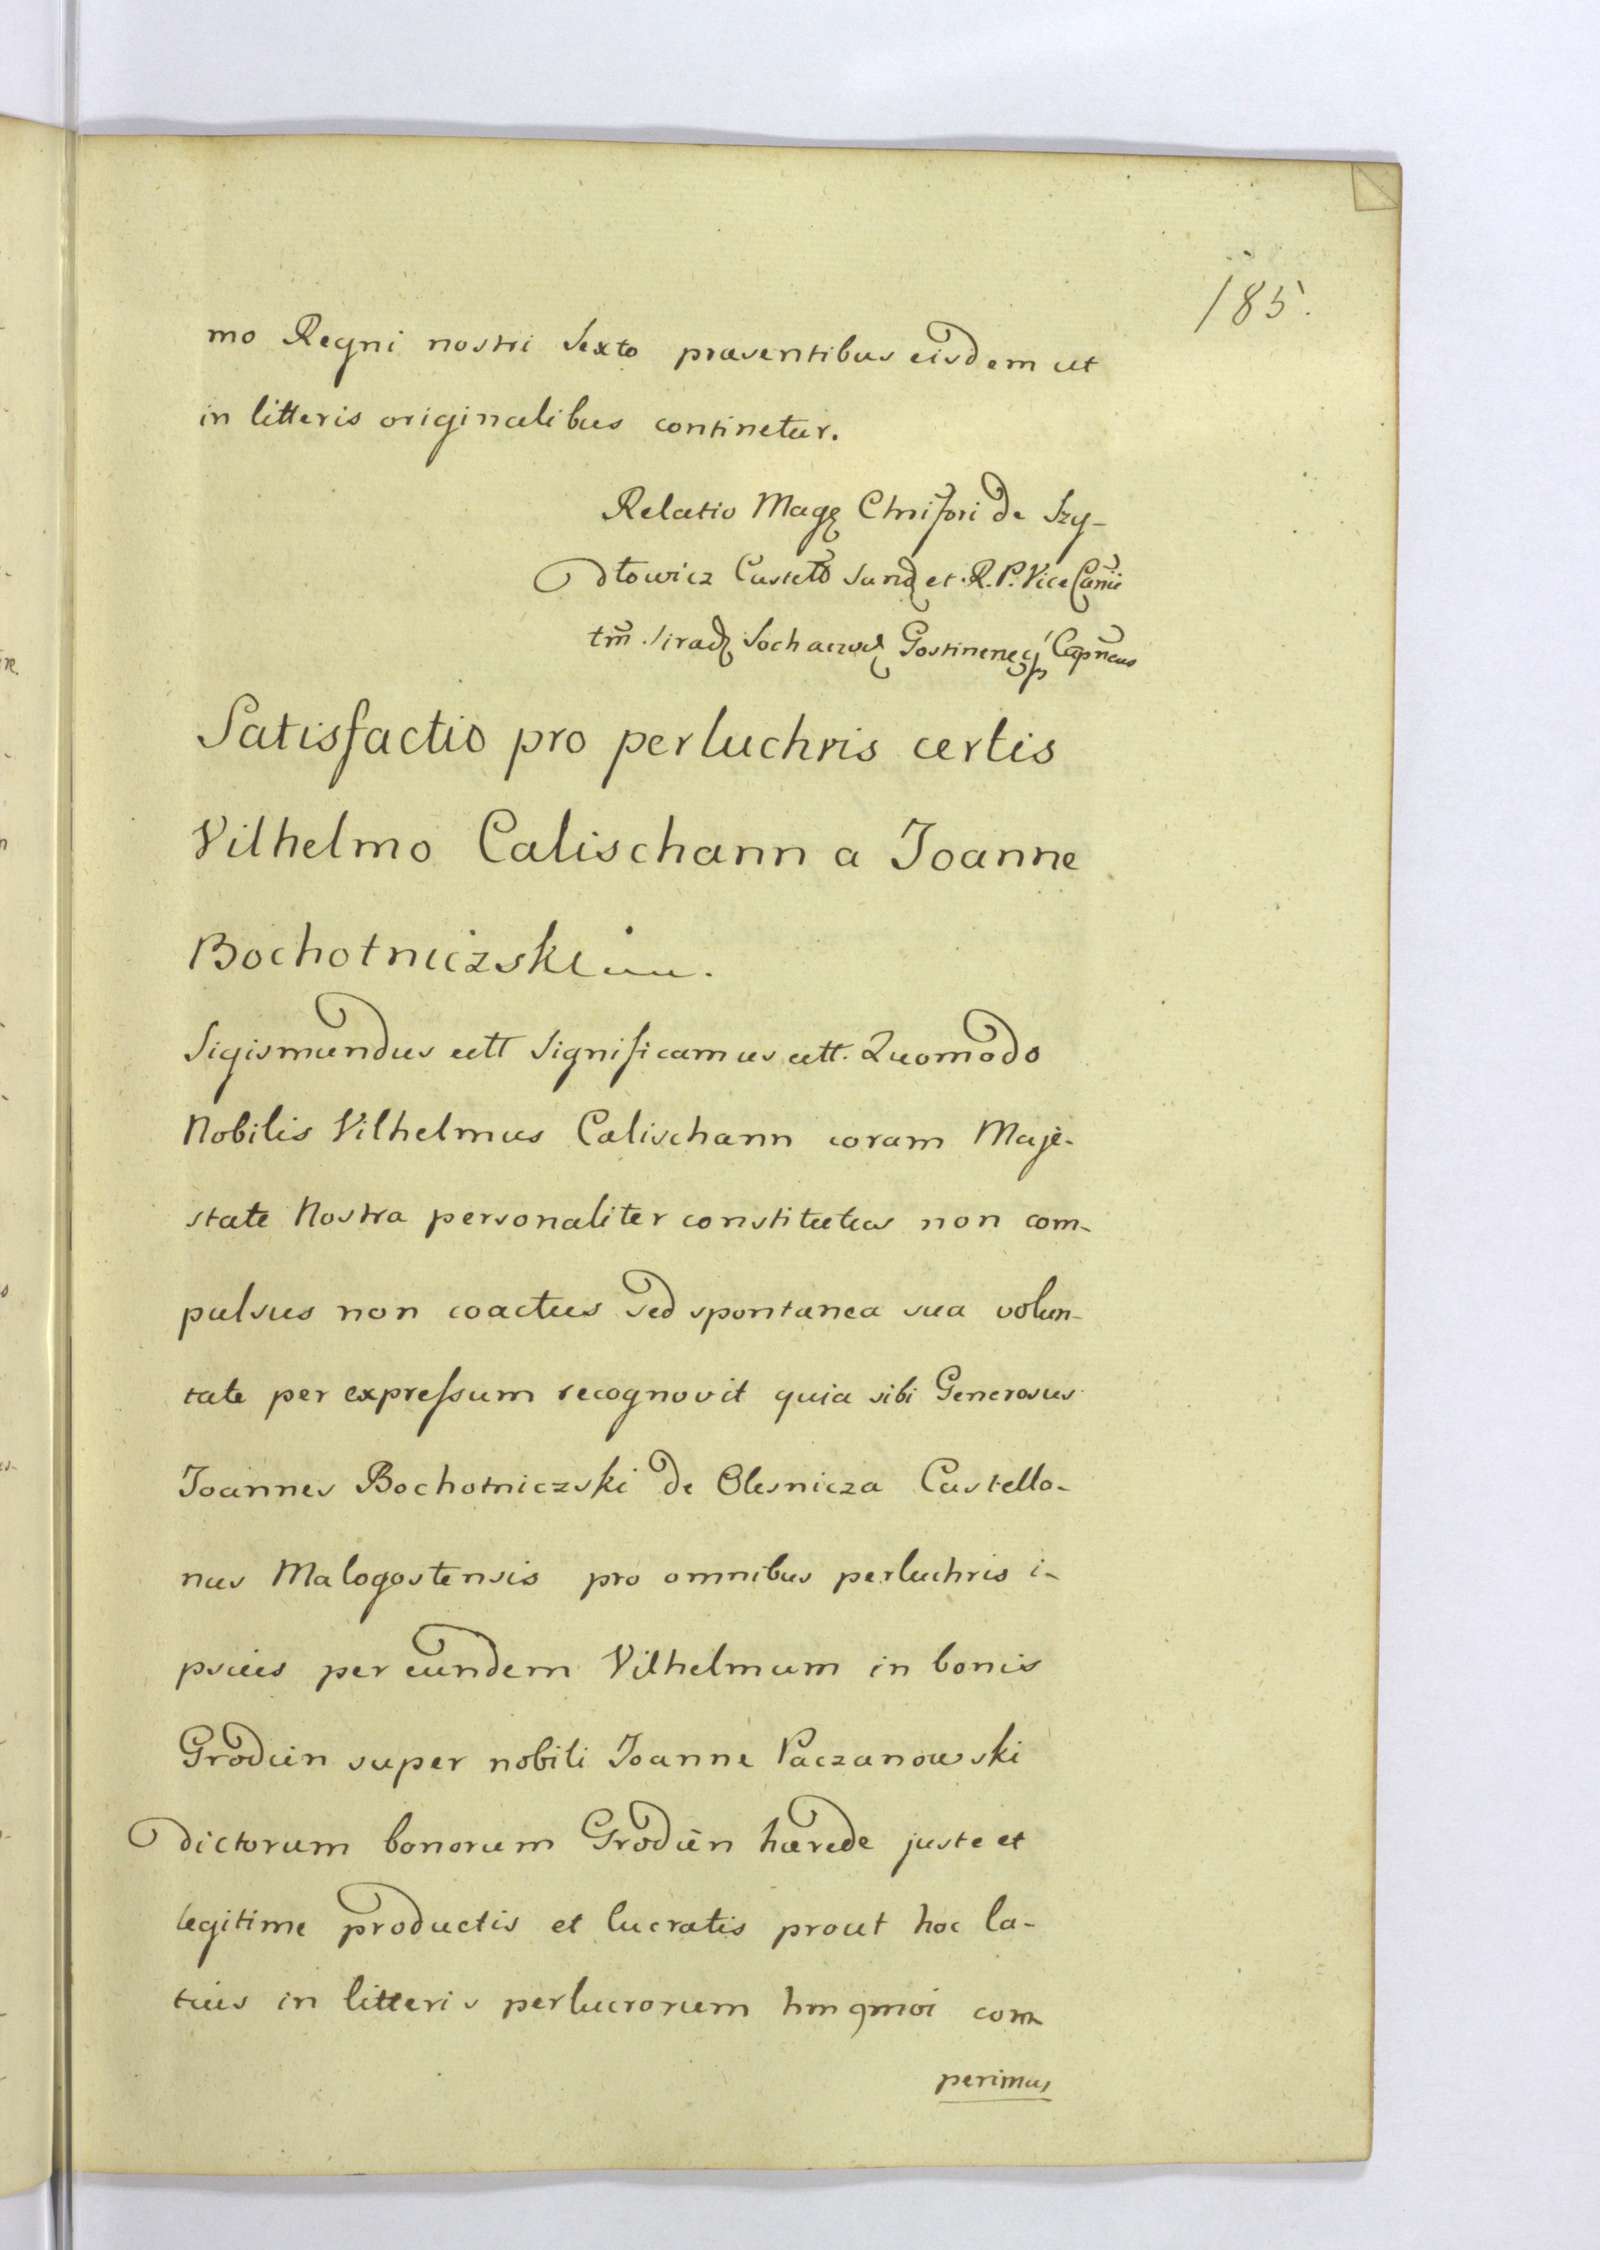 185.
mo Regni nostri Sexto præsentibus eisdem ut
in litteris originalibus continetur.
Relatio Magꝫ Chrisori de Szy-
dłowicz Castell Sandꝫ et R. P. Vice Canii
tm Siradꝫ Sochaczovꝫ Gostinenꝫ Capneus
Satisfactio pro perluchris certis
Vilhelmo Calischann a Joanne
Bochotniczski.
Sigismundus ett Significamus ett. Quomodo
Nobilis Vilhelmus Calischann coram Maje-
state Nostra personaliter constitutus non com-
pulsus non coactus sed spontanea sua volun-
tate per expressum recognovit quia sibi Generosus
Joannes Bochotniczski de Olesnicza Castella-
nus Malogostensis pro omnibus perluchris i-
psius per eundem Vilhelmum in bonis
Grodün super nobili Joanne Paczanowski
dictorum bonorum Grodün hærede juste et
legitime productis et lucratis prout hoc la-
tius in litteris perlucrorum hmqmoi com
perimus